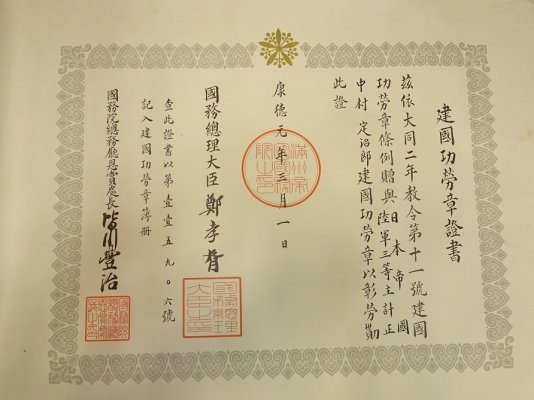 建國功勞章證書
茲依大同二年教令第十一號建國
功勞章條例贈與日本帝國陸軍三等主計正
中村定治郎建國功勞章以彰勞勳
此證
康德元年三月一日
國務總理大臣鄭孝胥
查此證書以第壹壹五九〇六號
記入建國功勞章簿冊
國務院總務廳恩賞處長皆川豐治